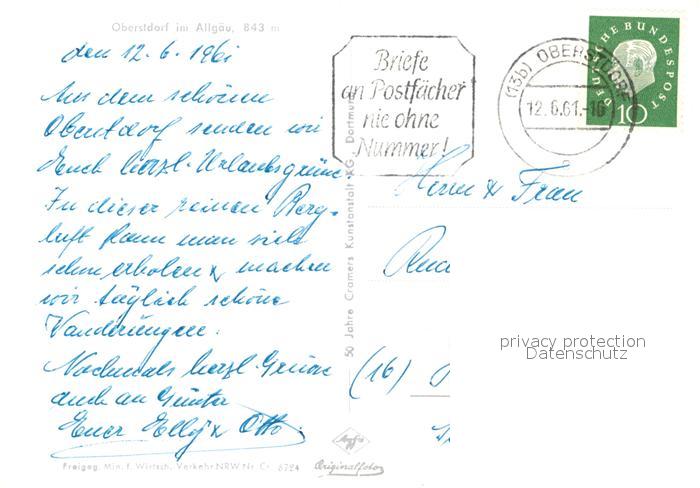 Oberstdorf im Allgäu, 843 m
den 12.6.1961
Aus dem schönen
Oberstdorf senden wir
Euch herzl. Urlaubsgrüsse
In dieser reinen Berg-
luft kann man sich
schön erholen & machen
wir täglich schöne
Wanderungen.
Nochmals herzl. Grüsse
auch an Günter
Euer Elly & Otto
Freigeg. Min. f. Wirtsch. Verkehr NRW Nr. C 6724
50 Jahre Cramers Kunstanstalt KG., Dortmund
Agfa
Originalfoto
Briefe
an Postfächer
nie ohne
Nummer!
(13b) OBERSTDORF
12.6.61.-16
a
DEUTSCHE BUNDESPOST
10
Herrn & Frau
(16)
privacy protection
Datenschutz